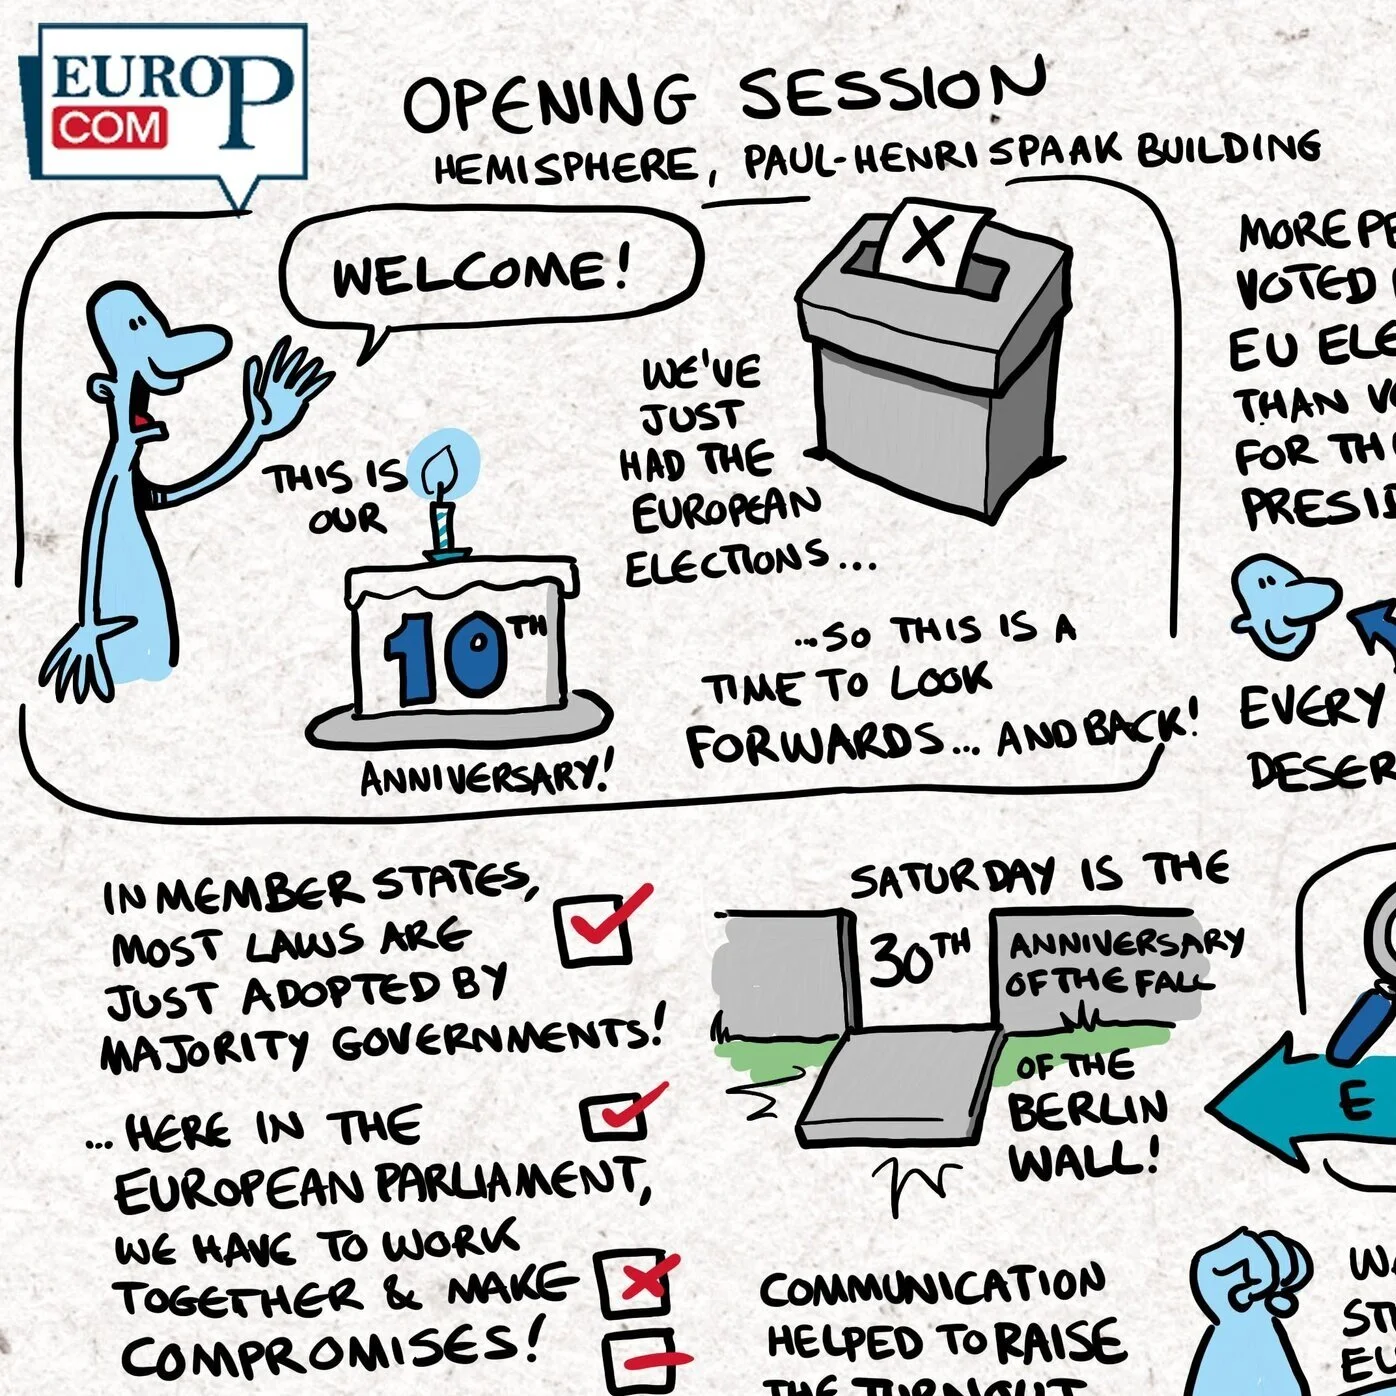 EUROP
COM
OPENING SESSION
HEMISPHERE, PAUL-HENRI SPAAK BUILDING
WELCOME!
THIS IS
OUR
10TH
ANNIVERSARY!
X
WE'VE
JUST
HAD THE
EUROPEAN
ELECTIONS...
...SO THIS IS A
TIME TO LOOK
FORWARDS... AND BACK!
MORE
VOTED
EU
THAN
FOR
EVERY
IN MEMBER STATES,
MOST LAWS ARE
JUST ADOPTED BY
MAJORITY GOVERNMENTS!
... HERE IN THE
EUROPEAN PARLIAMENT,
WE HAVE TO WORK
TOGETHER & MAKE
COMPROMISES!
SATURDAY IS THE
30TH ANNIVERSARY
OF THE FALL
OF THE
BERLIN
WALL!
E
COMMUNICATION
HELPED TO RAISE
THE TURNOUT